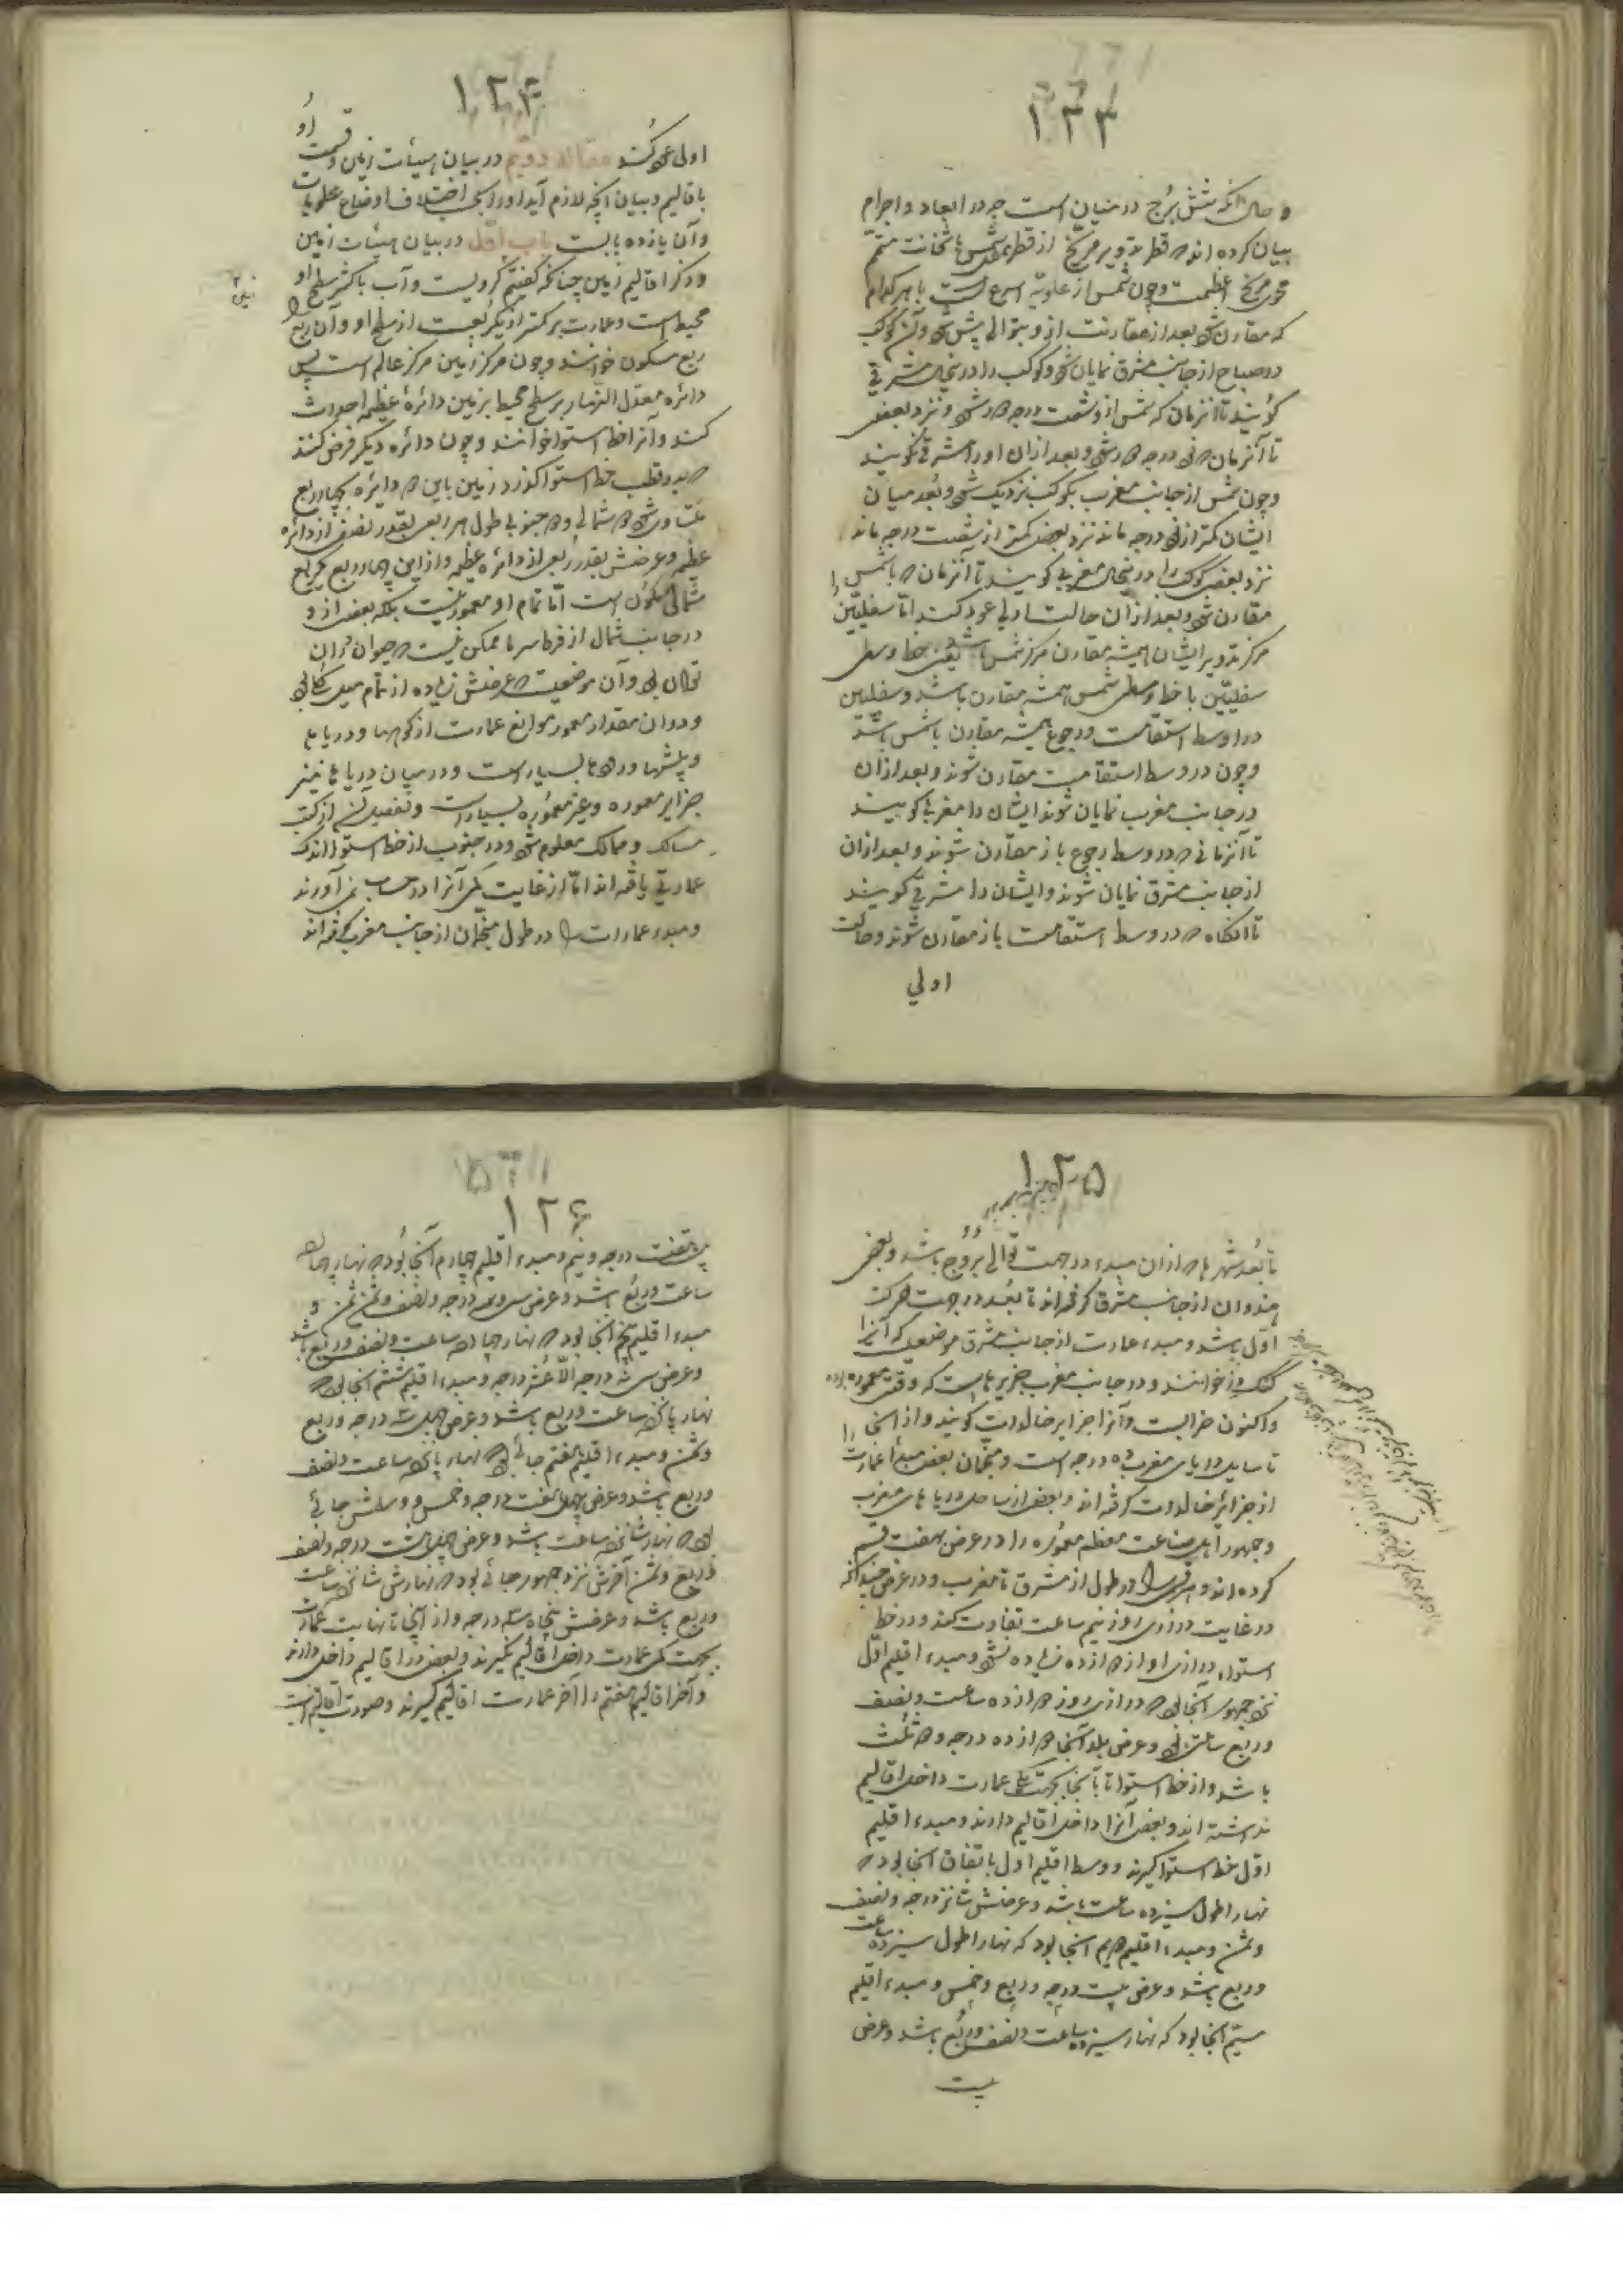 ۱۲۳
و حال آنکه شمس برج در میان است چه در ابعاد و اجرام
بیان کرده اند که قطر تدویر مریخ از قطر ممثل شمس با ثخانت متمم
حوی مریخ اعظمست و چون شمس از علویه اسرع است با هر کدام
که مقارن شود بعد از مقارنت از و بتوالی پیش شود و آن کوکب
در صباح از جانب مشرق نمایان شود و کوکب را در نحال مشرقی
کویند تا آنزمان که شمس از و شصت درجه دور شود و نزد بعضی
تا آنزمان که نود درجه دور شود و بعد از ان اورا مشرقی نکویند
و چون شمس از جانب مغرب بکوکب نزدیک شود و بعد میان
ایشان کمتر از نود درجه ماند نزد بعضی کمتر از شصت درجه ماند
نزد بعضی کوکب را در نحال مغربی کویند تا آنزمان که با شمس
مقارن شود و بعد از ان حالت اولی عود کند اما سفلیین را
مرکز تدویر ایشان همیشه مقارن مرکز شمس باشد یعنی خط وسطی
سفلیین با خط وسطی شمس همیشه مقارن باشد و سفلیین
در اوسط استقامت و رجوع همیشه مقارن با شمس باشند
و چون در وسط استقامت مقارن شوند و بعد از ان
در جانب مغرب نمایان شوند ایشان را مغربی کویند
تا آنزمانی که در وسط رجوع باز مقارن شوند و بعد از ان
از جانب مشرق نمایان شوند و ایشان را مشرقی کویند
تا آنکاه که در وسط استقامت باز مقارن شوند و حالت
اولی
۱۲۴
اولی عود کند مقاله دویم در بیان هیئات زمین و قسمت او
باقالیم و بیان آنچه لازم آید اورا بحسب اختلاف اوضاع علویات
و آن یازده بابست باب اول در بیان هیئات زمین
و ذکر اقالیم زمین چنانکه کفتیم کرویست و آب باکثر سطح او
محیط است و عمارت بر کمتر از یک ربعست از سطح او و آن ربع را
ربع مسکون خوانند و چون مرکز زمین مرکز عالم است پس
دائره معدل النهار بر سطح محیط بزمین دائرهٔ عظیمه احداث
کند و آنرا خط استوا خوانند و چون دائره دیکر فرض کنند
که بدو قطب خط استوا کذرد زمین باین دو دائره بچهار ربع
متساوی شود دو شمالی و دو جنوبی طول هر ربعی بقدر نصف از دائره
عظیمه و عرضش بقدر ربعی از دائره عظیمه و از این چهار ربع یکربع
شمالی مسکون است اما تمام او معمور نیست بلکه بعضی از و
در جانب شمال از فرط سرما ممکن نیست که حیوان در ان
تواند بود و آن موضعیست که عرضش زیاده از تمام میل کلی بود
و در ان مقدار معمور موانع عمارت از کوهها و دریاها
و بیشها و رودها بسیار است و در میان دریاها نیز
جزایر معموره و غیر معموره بسیار است و تفصیل آن از کتب
مسالک و ممالک معلوم شود و در جنوب از خط استوا اندک
عمارتی یافته اند اما از غایت کمی آنرا در حساب نمی آورند
و مبدء عمارات را در طول منجمان از جانب مغرب کرفته اند
۱۲۵
تا بعد شهرها از ان مبدء در جهت توالی بروج باشد و بعضی
هندوان از جانب مشرق کرفته اند تا بعد در جهت حرکت
اول باشد و مبدء عمارت از جانب مشرق موضعیست که آنرا
کنک دز خوانند و در جانب مغرب جزیرهاست که وقتی معموره بوده
و اکنون خرابست و آنرا جزایر خالدات کویند و از آنجا
تا ساحل دریای مغرب ده درجه است و منجمان بعضی مبدأ عمارت را
از جزائر خالدات کرفته اند و بعضی از ساحل دریاهای مغرب
و جمهور اهل صناعت معظم معموره را در عرض بهفت قسم
کرده اند و هر قسمی را در طول از مشرق تا مغرب و در عرض چندانکه
در غایت درازی روز نیم ساعت تفاوت کند و در خط
استواء درازی او از دوازده زیاده نشود و مبدء اقلیم اول
نزد جمهور آنجا بود که درازی روز دوازده ساعت و نصف
و ربع ساعتی بود و عرض بلد آنجا دوازده درجه و دو ثلث
باشد و از خط استوا تا بآنجا بجهت کمی عمارت داخل اقالیم
نداشته اند و بعضی آنرا داخل اقالیم دارند و مبدء اقلیم
اول خط استوا کیرند و وسط اقلیم اول باتفاق آنجا بود که
نهار اطول سیزده ساعت باشد و عرضش شانزده درجه و نصف
و ثمن و مبدء اقلیم دویم آنجا بود که نهار اطول سیزده ساعت
و ربع باشد و عرض بیست درجه و ربع و خمس و مبدء اقلیم
سیم آنجا بود که نهار سیزده ساعت و نصف و ربع باشد و عرض
بیست
۱۲۶
بیست و هفت درجه و نیم و مبدء اقلیم چهارم آنجا بود که نهار چهارده
ساعت و ربع باشد و عرض سی و سه درجه و نصف و ثمن و
مبدء اقلیم پنجم آنجا بود که نهار چهارده ساعت و نصف و ربع باشد
و عرض سی و نه درجه الا عشر درجه و مبدء اقلیم ششم آنجا بود که
نهار پانزده ساعت و ربع باشد و عرض چهل و سه درجه و ربع
و ثمن و مبدء اقلیم هفتم جائی بود که نهار پانزده ساعت و نصف
و ربع باشد و عرض چهل و هفت درجه و خمس و وسطش جائی
بود که نهار شانزده ساعت باشد و عرض چهل و هشت درجه و نصف
و ربع و ثمن آخرش نزد جمهور جائی بود که نهارش شانزده ساعت
و ربع باشد و عرضش پنجاه و سه درجه و از آنجا تا نهایت عمارت
بجهت کمی عمارت داخل اقالیم نکیرند و بعضی در اقالیم داخل دارند
و آخر اقالیم هفتم را آخر عمارت اقالیم کیرند و صورت اقالیم اینست